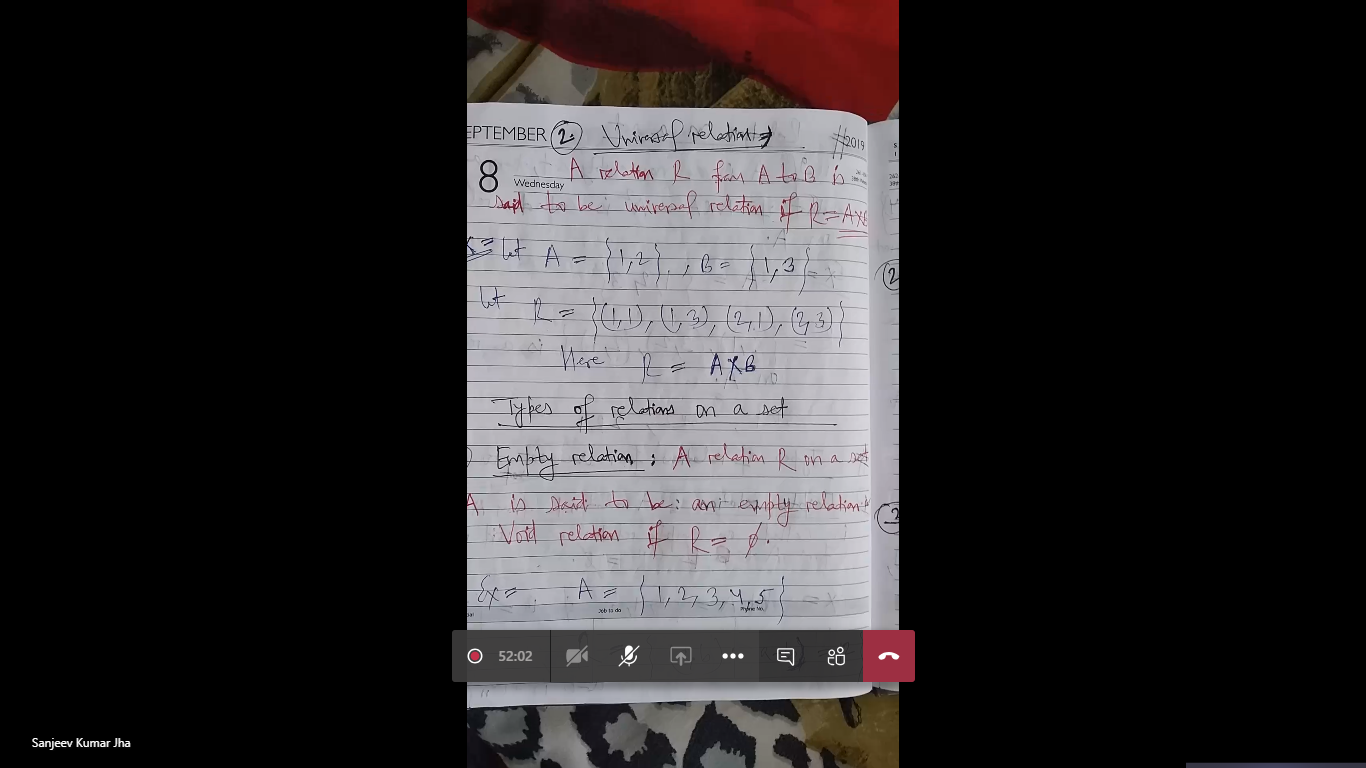 EPTEMBER ② Universal relation 2019
8 Wednesday A relation R from A to B is
said to be universal relation if R = A×B
Ex = let A = {1,2} , B = {1,3}
let R = {(1,1), (1,3), (2,1), (2,3)}
Here R = A×B
Types of relations on a set
Empty relation : A relation R on a set
A is said to be an empty relation
Void relation if R = φ.
Ex = A = {1,2,3,4,5}
Job to do Phone No.
52:02
Sanjeev Kumar Jha